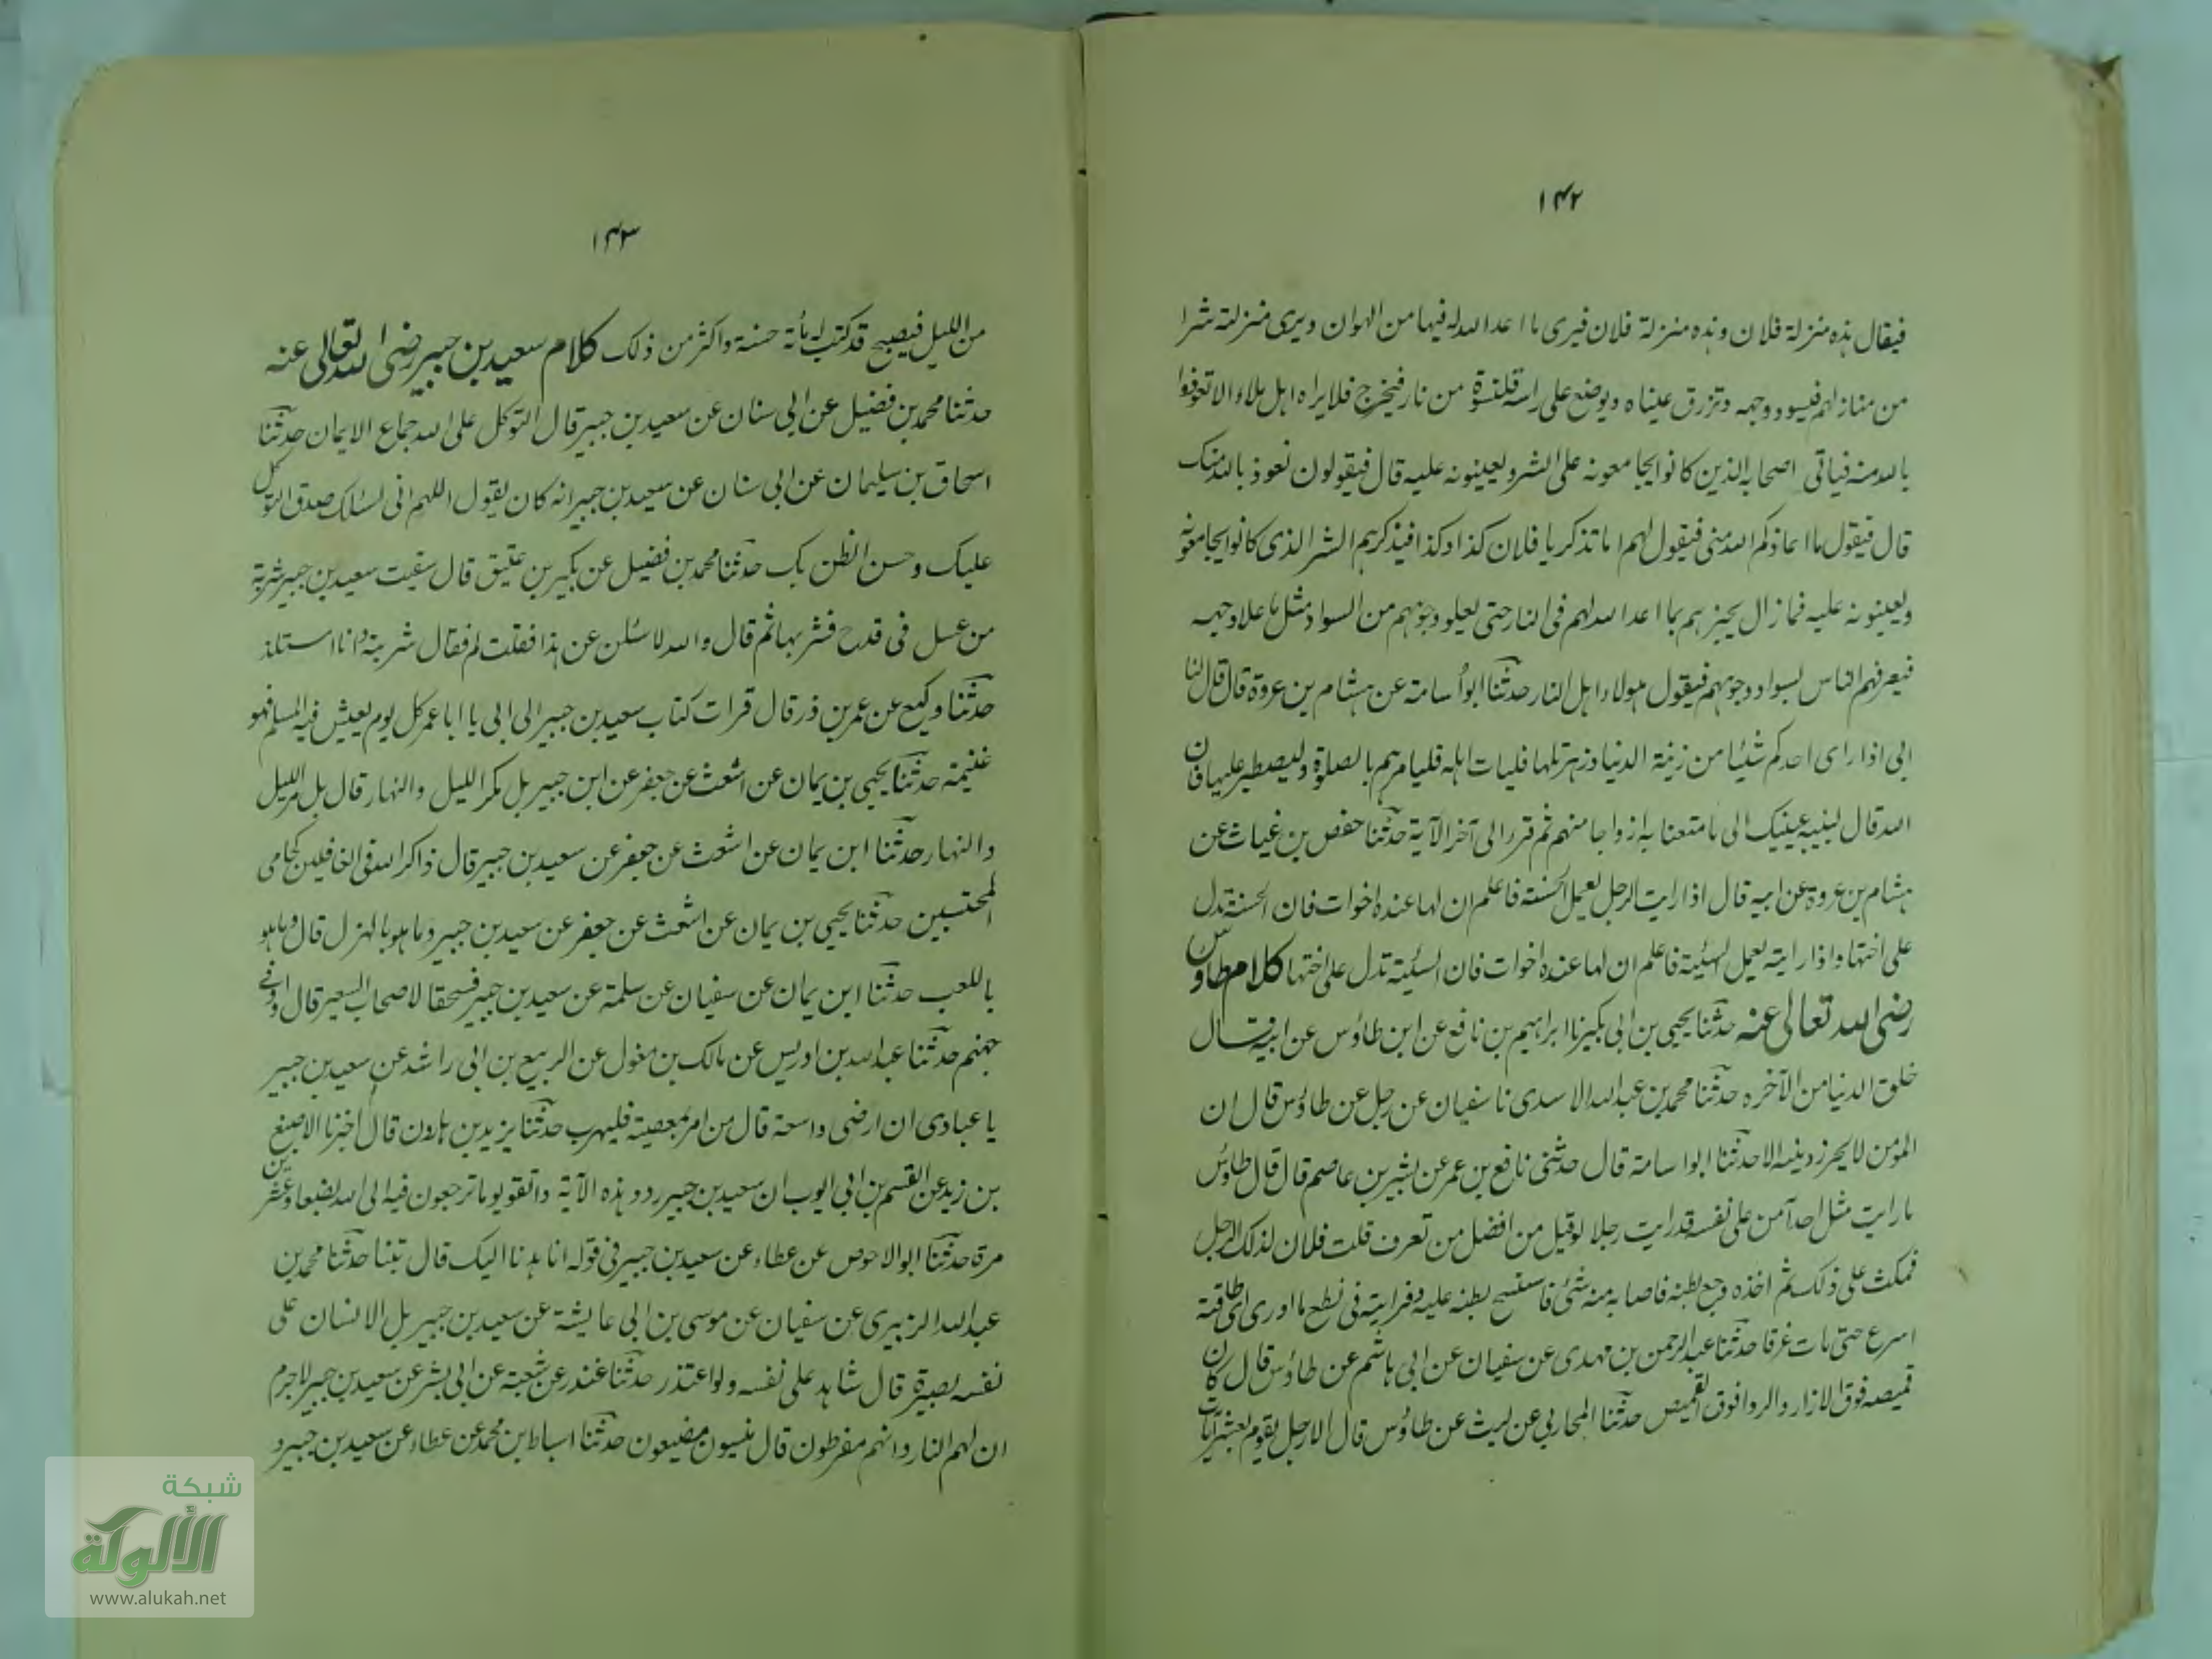 ۱۴۲
فيقال هذه منزلة فلان وهذه منزلة فلان فيرى ما اعد الله له فيها من الهوان ويرى منزلته شرا
من منازلهم فيسود وجهه وتزرق عيناه ويوضع على راسه قلنسوة من نار فيخرج فلا يراه اهل ملاء الا تعوذوا
بالله منه فياتى اصحابه الذين كانوا يجامعونه على الشر ويعينونه عليه قال فيقولون نعوذ بالله منك
قال فيقول ما اعاذكم الله منى فيقول لهم اما تذكر يا فلان كذا وكذا فيذكرهم الشر الذى كانوا يجامعونه
ويعينونه عليه فما زال يخبرهم بما اعد الله لهم فى النار حتى يعلو وجوههم من السواد مثل ما علا وجهه
فيعرفهم الناس بسواد وجوههم فيقول هولاء اهل النار حدثنا ابو اسامة عن هشام بن عروة قال قال لنا
ابى اذا راى احدكم شيئا من زينة الدنيا وزهرتها فليات اهله فليامرهم بالصلوة وليصطبر عليها فان
الله قال لنبيه عينيك الى ما متعنا به ازواجا منهم ثم قرء الى آخر الآية حدثنا حفص بن غياث عن
هشام بن عروة عن ابيه قال اذا رايت الرجل يعمل الحسنة فاعلم ان لها عنده اخوات فان الحسنة تدل
على اختها واذا رايته يعمل السيئة فاعلم ان لها عنده اخوات فان السيئة تدل على اختها كلام طاوس
رضى الله تعالى عنه حدثنا يحيى بن ابى بكير نا ابراهيم بن نافع عن ابن طاؤس عن ابيه قال
خلق الدنيا من الآخره حدثنا محمد بن عبد الله الاسدى نا سفيان عن رجل عن طاؤس قال ان
المومن لا يحرز دينه الا حدثنا ابو اسامة قال حدثنى نافع بن عمر عن بشير بن عاصم قال قال طاؤس
ما رايت مثل احد آمن على نفسه قد رايت رجلا لو قيل من افضل من تعرف قلت فلان لذلك الرجل
فمكث على ذلك ثم اخذه وجع بطنه فاصابه منه شئ فاستسح بطنه عليه فرايته فى نطع ما ادرى اى طاقيه
اسرع حتى مات غرقا حدثنا عبد الرحمن بن مهدى عن سفيان عن ابى هاشم عن طاؤس قال كان
قميصه فوق الازار والردا فوق القميص حدثنا المحاربى عن ليث عن طاؤس قال الا رجل يقوم بعشر آيات
۱۴۳
من الليل فيصبح قد كتب له مأئة حسنة واكثر من ذلك كلام سعيد بن جبير رضى الله تعالى عنه
حدثنا محمد بن فضيل عن ابى سنان عن سعيد بن جبير قال التوكل على الله جماع الايمان حدثنا
اسحاق بن سليمان عن ابى سنان عن سعيد بن جبير انه كان يقول اللهم انى اسئلك صدق التوكل
عليك وحسن الظن بك حدثنا محمد بن فضيل عن بكير بن عتيق قال سقيت سعيد بن جبير شربة
من عسل فى قدح فشربها ثم قال والله لاسئلن عن هذا فقلت لم فقال شربته وانا استلذ
حدثنا وكيع عن عمر بن ذر قال قرات كتاب سعيد بن جبير الى ابى يا ابا عمر كل يوم يعيش فيه المسلم فهو
غنيمة حدثنا يحيى بن يمان عن اشعث عن جعفر عن ابن جبير بل مكر الليل والنهار قال بل مر الليل
والنهار حدثنا ابن يمان عن اشعث عن جعفر عن سعيد بن جبير قال ذاكر الله فى الغافلين كحامى
المحتسبين حدثنا يحيى بن يمان عن اشعث عن جعفر عن سعيد بن جبير وما هو بالهزل قال وما هو
باللعب حدثنا ابن يمان عن سفيان عن سلمة عن سعيد بن جبير فسحقا لاصحاب السعير قال واد فى
جهنم حدثنا عبد الله بن ادريس عن مالك بن مغول عن الربيع بن ابى راشد عن سعيد بن جبير
يا عبادى ان ارضى واسعة قال من امر بمعصية فليهرب حدثنا يزيد بن هارون قال اخبرنا الاصبغ
بن زيد عن القسم بن ابى ايوب ان سعيد بن جبير ردد هذه الآية واتقوا يوما ترجعون فيه الى الله بضعا وعشرين
مرة حدثنا ابو الاحوص عن عطاء عن سعيد بن جبير فى قوله انا هدنا اليك قال تبنا حدثنا محمد بن
عبد الله الزبيرى عن سفيان عن موسى بن ابى عايشة عن سعيد بن جبير بل الانسان على
نفسه بصيرة قال شاهد على نفسه ولو اعتذر حدثنا غندر عن شعبة عن ابى بشر عن سعيد بن جبير لا جرم
ان لهم النار وانهم مفرطون قال منسيون مضيعون حدثنا اسباط بن محمد عن عطاء عن سعيد بن جبير و
شبكة
الألوكة
www.alukah.net